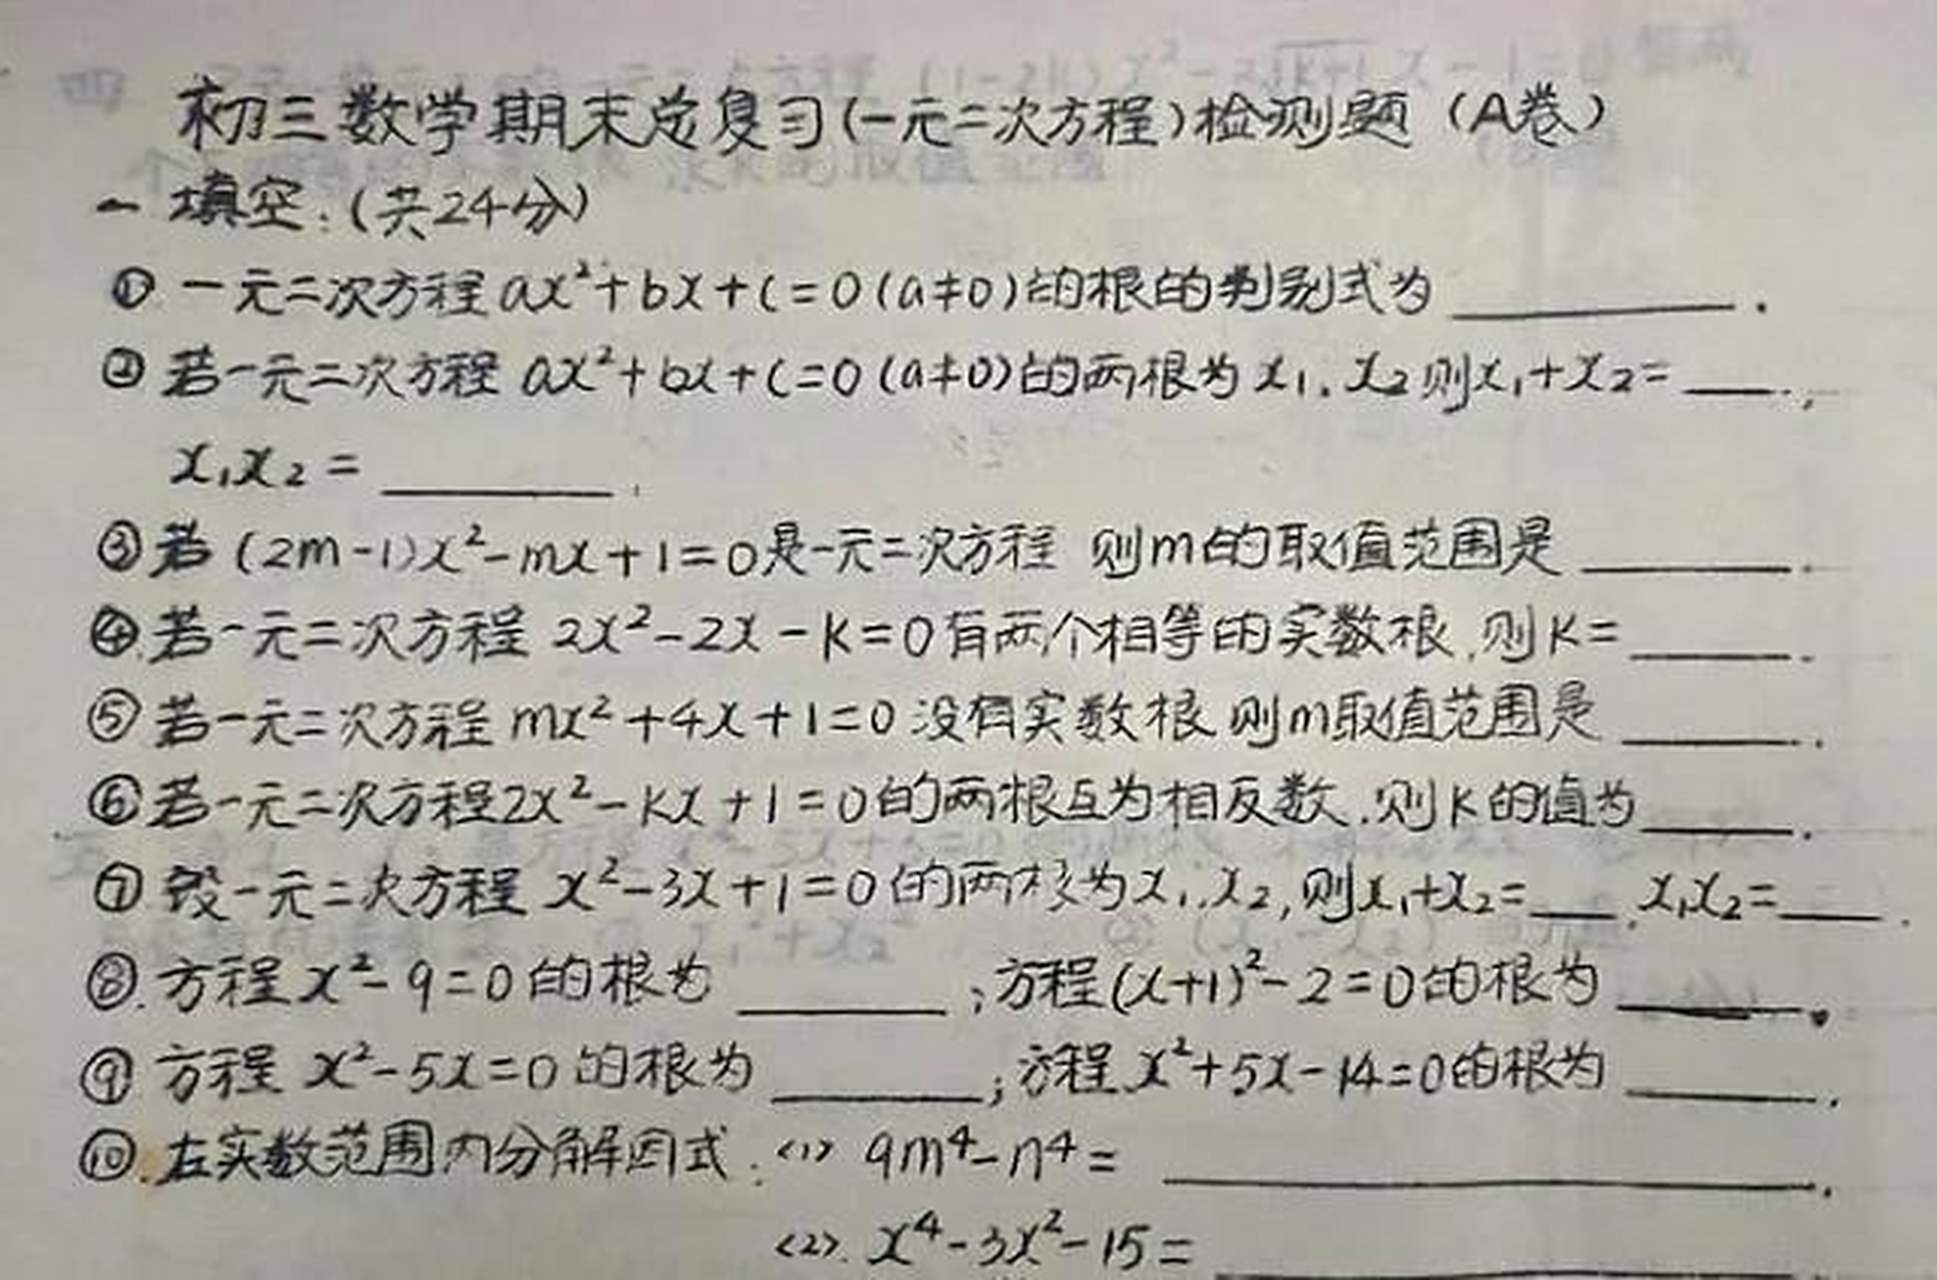 初三数学期末总复习(一元二次方程)检测题(A卷)
一 填空:(共24分)
① 一元二次方程ax²+bx+c=0(a≠0)的根的判别式为______.
② 若一元二次方程 ax²+bx+c=0(a≠0)的两根为x₁.x₂则x₁+x₂=___,
x₁x₂=______.
③若(2m-1)x²-mx+1=0是一元二次方程 则m的取值范围是______.
④.若一元二次方程 2x²-2x-k=0有两个相等的实数根,则k=____.
⑤若一元二次方程mx²+4x+1=0没有实数根则m取值范围是_____.
⑥若一元二次方程2x²-kx+1=0的两根互为相反数.则k的值为____.
⑦设一元二次方程 x²-3x+1=0的两根为x₁.x₂,则x₁+x₂=__.x₁x₂=___.
⑧.方程x²-9=0的根为______;方程(x+1)²-2=0的根为_____.
⑨方程 x²-5x=0的根为______;方程x²+5x-14=0的根为_____.
⑩.在实数范围内分解因式:<1> 9m⁴-n⁴=______________.
<2>. x⁴-3x²-15=______________